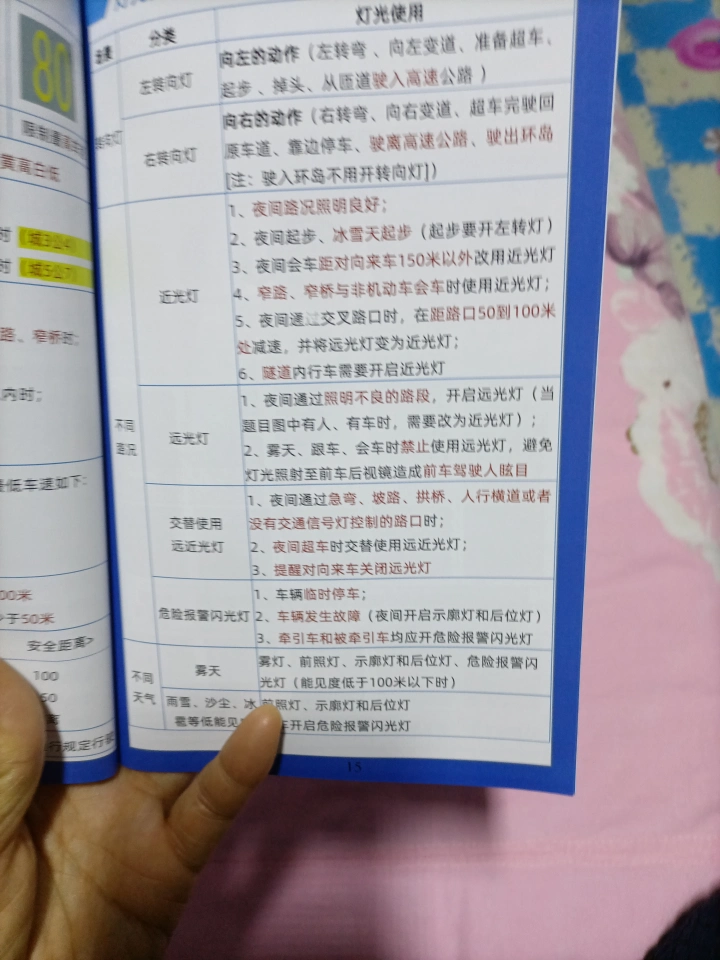 80
黄高白低
时（城3公4）
时（城5公7）
路、窄桥时；
内时；
最低车速如下：
00米
少于50米
安全距离>
100
50
行规定行驶
分类
灯光使用
左转向灯
向左的动作（左转弯、向左变道、准备超车、
起步、掉头、从匝道驶入高速公路）
转向灯
右转向灯
向右的动作（右转弯、向右变道、超车完驶回
原车道、靠边停车、驶离高速公路、驶出环岛
[注：驶入环岛不用开转向灯]）
不同
路况
近光灯
1、夜间路况照明良好；
2、夜间起步、冰雪天起步（起步要开左转灯）
3、夜间会车距对向来车150米以外改用近光灯
4、窄路、窄桥与非机动车会车时使用近光灯；
5、夜间通过交叉路口时，在距路口50到100米
处减速，并将远光灯变为近光灯；
6、隧道内行车需要开启近光灯
远光灯
1、夜间通过照明不良的路段，开启远光灯（当
题目图中有人、有车时，需要改为近光灯）；
2、雾天、跟车、会车时禁止使用远光灯，避免
灯光照射至前车后视镜造成前车驾驶人眩目
交替使用
远近光灯
1、夜间通过急弯、坡路、拱桥、人行横道或者
没有交通信号灯控制的路口时；
2、夜间超车时交替使用远近光灯；
3、提醒对向来车关闭远光灯
危险报警闪光灯
1、车辆临时停车；
2、车辆发生故障（夜间开启示廓灯和后位灯）
3、牵引车和被牵引车均应开危险报警闪光灯
不同
天气
雾天
雾灯、前照灯、示廓灯和后位灯、危险报警闪
光灯（能见度低于100米以下时）
雨雪、沙尘、冰
雹等低能见
前照灯、示廓灯和后位灯
车开启危险报警闪光灯
15